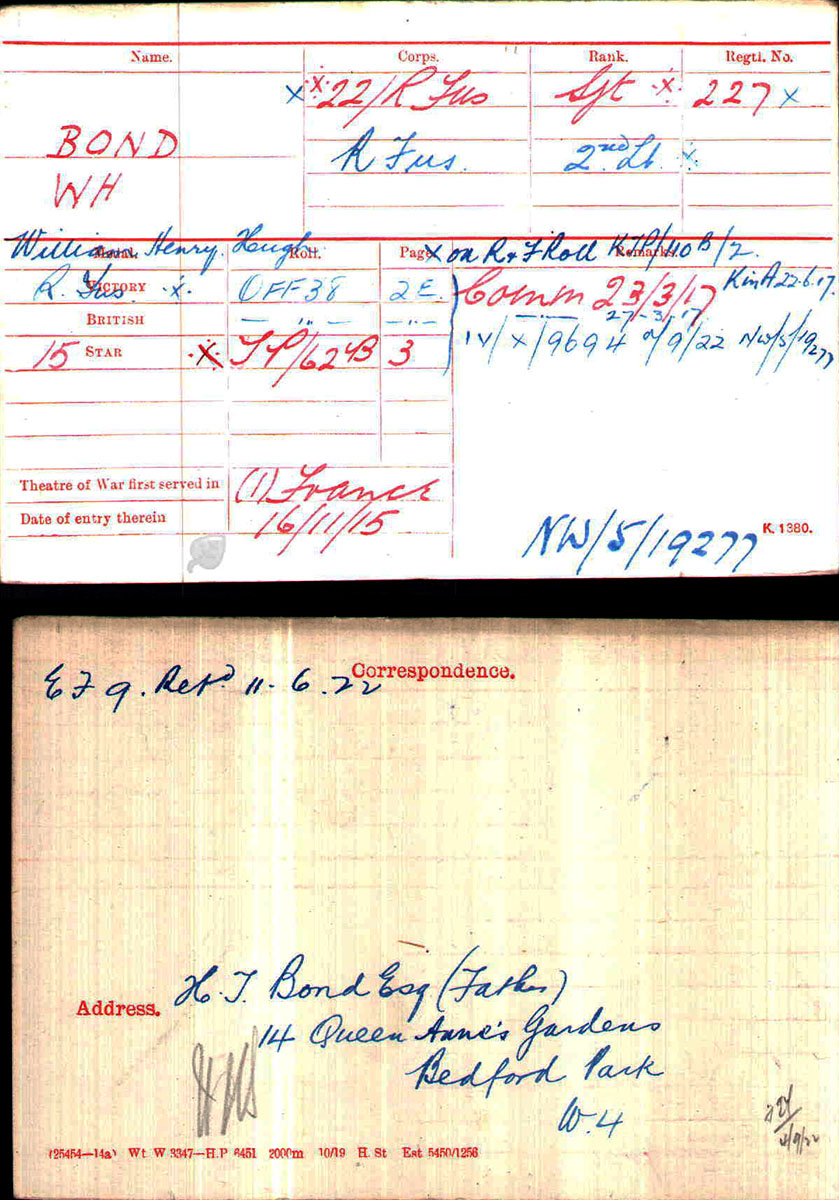 Name. Corps. Rank. Regtl. No.
x x 22/R Fus Sjt x 227 x
BOND R Fus. 2nd Lt. x
WH
William Henry Hugh
Medal. Roll. Page x on R & F Roll Remarks.
R. Fus. x
VICTORY OFF 38 2E. Comm 23/3/17 K in A 22.6.17.
BRITISH — " — — " — 27/3/17
15 STAR x TP/62B 3 IV/X/9694 NW/5/19277
Theatre of War first served in (1) France
Date of entry therein 16/11/15
NW/5/19277 K. 1380.
Correspondence.
EF 9. Retd 11. 6. 22
Address. H. T. Bond Esq (Father)
14 Queen Anne's Gardens
Bedford Park
W. 4
(25454—14a) Wt W 3347—H.P 6451 2000m 10/19 H. St Est 5450/1256